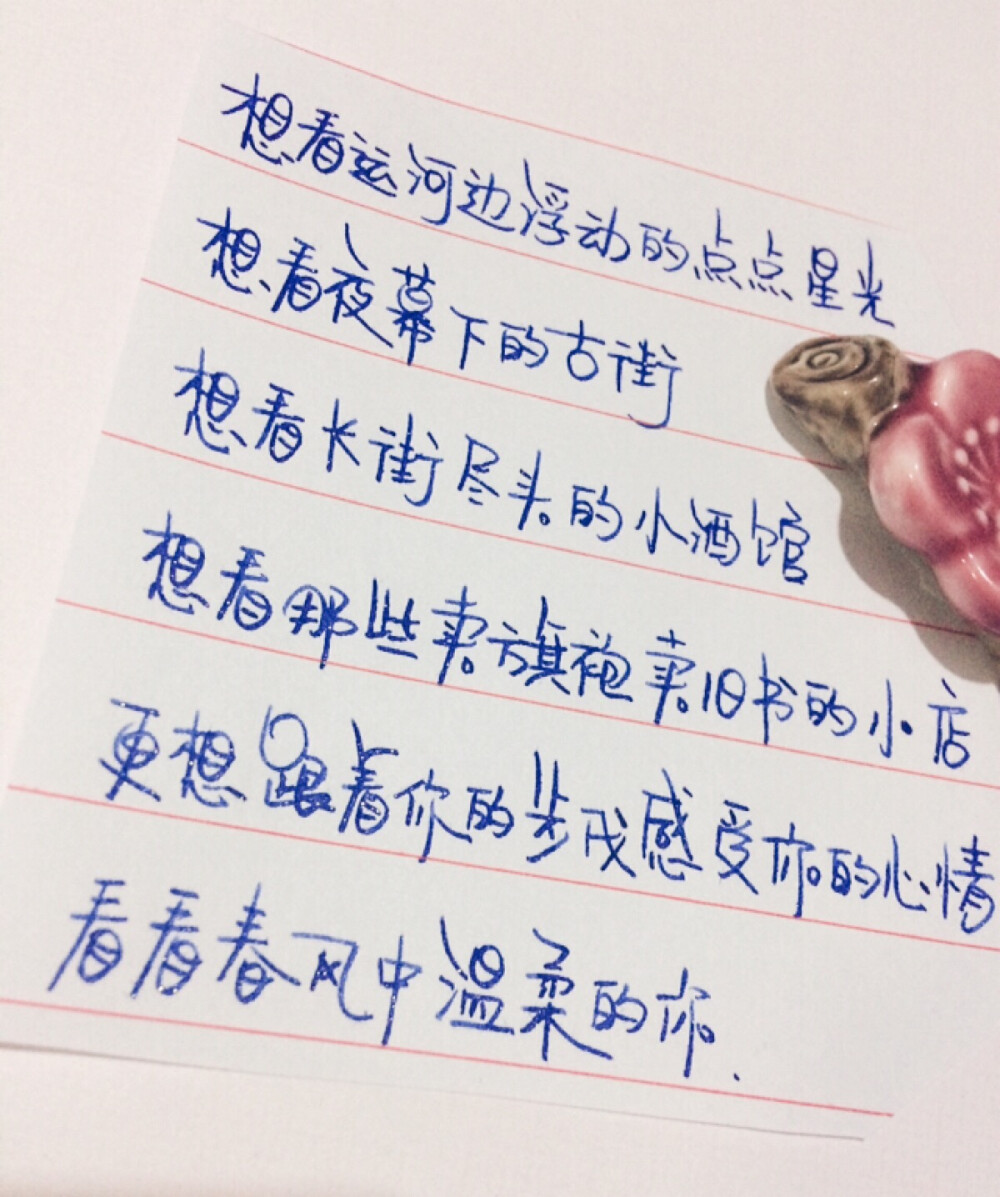 想看运河边浮动的点点星光
想看夜幕下的古街
想看长街尽头的小酒馆
想看那些卖旗袍卖旧书的小店
更想跟着你的步伐感受你的心情
看看春风中温柔的你.